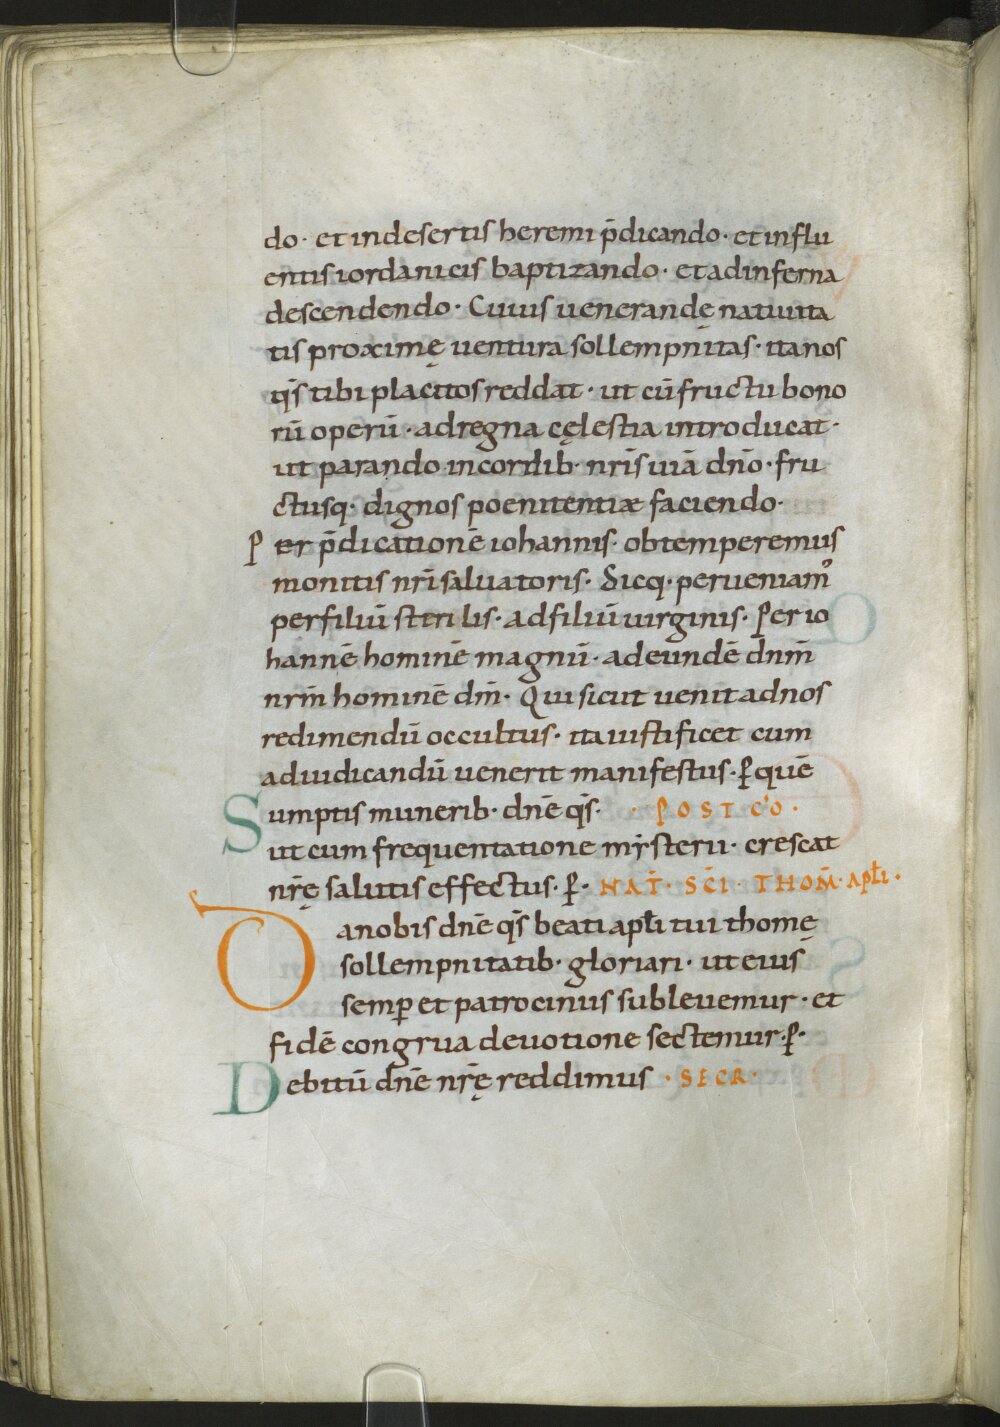 do· et in desertis heremi p̄dicando· et in flu
entis iordanicis baptizando· et ad inferna
descendendo· Cuius uenerandę natiuita
tis proximę uentura sollempnitas· ita nos
q̄s tibi placitos reddat· ut cū fructu bono
rū operū· ad regna cęlestia introducat·
ut parando in cordib· nr̄is uiā dn̄o· fru
ctusq· dignos poenitentiæ faciendo·
Per p̄dicationē iohannis· obtemperemus
monitis nr̄i saluatoris· Sicq· perueniam᾽
per filiū sterilis· ad filiū uirginis· Per io
hannē hominē magnū· ad eundē dnm̄
nrm̄ hominē dm̄· Qui sicut uenit ad nos
redimendū occultus· ita iustificet cum
ad iudicandū uenerit manifestus· ꝑ quē
Sumptis munerib· dn̄e q̄s· · POST CŌ·
ut cum frequentatione mẏsterii· crescat
nr̄ę salutis effectus· ꝑ· NAT̄· SC̄I· THOM̄· APƚI·
Da nobis dn̄e q̄s beati apƚi tui thomę
sollempnitatib· gloriari· ut eius
semꝑ et patrociniis subleuemur· et
fidē congrua deuotione sectemur· ꝑ·
Debitū dn̄e nr̄ę reddimus · SECR·